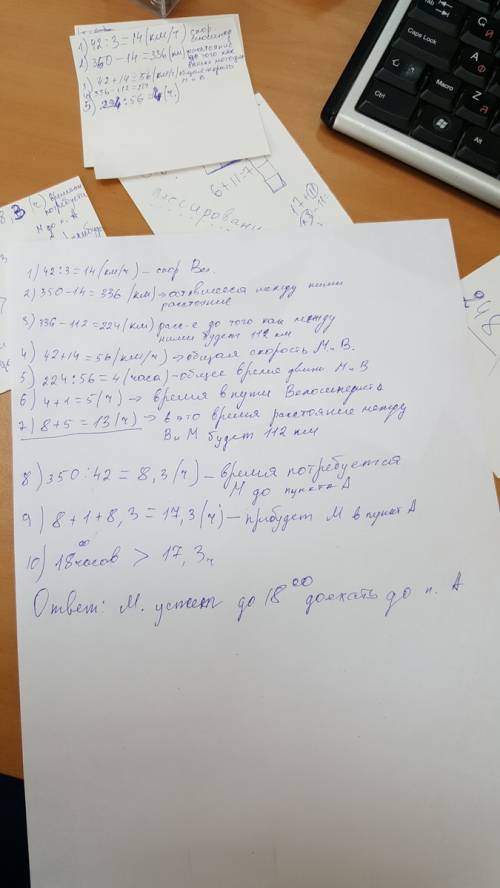 1) 42:3=14 (км/ч) скор
2) 350-14=336 (км) расстояние
до того как
3) 42+14=56 (км/ч)
336-112=224
5) 224:56=4 (ч)
6+11=7
M до п. A
1) 42:3=14 (км/ч) – скор Вел.
2) 350-14=336 (км) → оставшееся между ними
расстояние
3) 336-112=224 (км) расс-е до того как между
ними будет 112 км
4) 42+14=56 (км/ч) → общая скорость М и В.
5) 224:56=4 (часа) – общее время движ М и В
6) 4+1=5 (ч) → время в пути Велосипедиста
7) 8+5=13 (ч) → в это время расстояние между
В и М будет 112 км
8) 350:42=8,3 (ч) – время потребуется
М до пункта А
9) 8+1+8,3=17,3 (ч) – прибудет М в пункт А
10) 18⁰⁰ часов > 17,3ч
Ответ: М. успеет до 18⁰⁰ доехать до п. А
248
Caps Lock
Shift
Ctrl
Alt
Macro
Q
A
Z